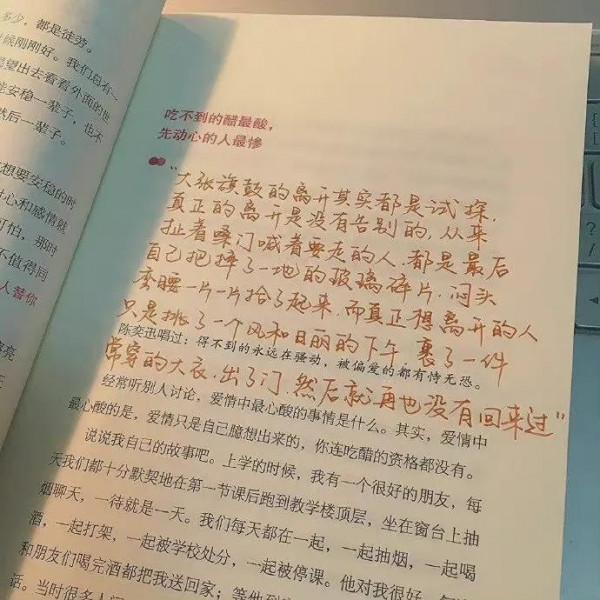 多少，都是徒劳。
候刚刚好。我们总有一
望出去看看外面的世
安稳一辈子，也不
然后一辈子。
想要安稳的时
心和感情就
可怕，那时
不值得同
人替你
吃不到的醋最酸，
先动心的人最惨
“大张旗鼓的离开其实都是试探，
真正的离开是没有告别的，从来
扯着嗓门喊着要走的人，都是最后
自己把摔了一地的玻璃碎片，闷头
弯腰一片一片拾了起来，而真正想离开的人
只是挑了一个风和日丽的下午，裹了一件
陈奕迅唱过：得不到的永远在骚动，被偏爱的都有恃无恐。
常穿的大衣，出了门，然后就再也没有回来过”
经常听别人讨论，爱情中最心酸的事情是什么。其实，爱情中
最心酸的是，爱情只是自己臆想出来的，你连吃醋的资格都没有。
说说我自己的故事吧。上学的时候，我有一个很好的朋友，每
天我们都十分默契地在第一节课后跑到教学楼顶层，坐在窗台上抽
烟聊天，一待就是一天。我们每天都在一起，一起抽烟，一起喝
酒，一起打架，一起被学校处分，一起被停课。他对我很好，
和朋友们喝完酒都把我送回家；等他到
话。当时很多人